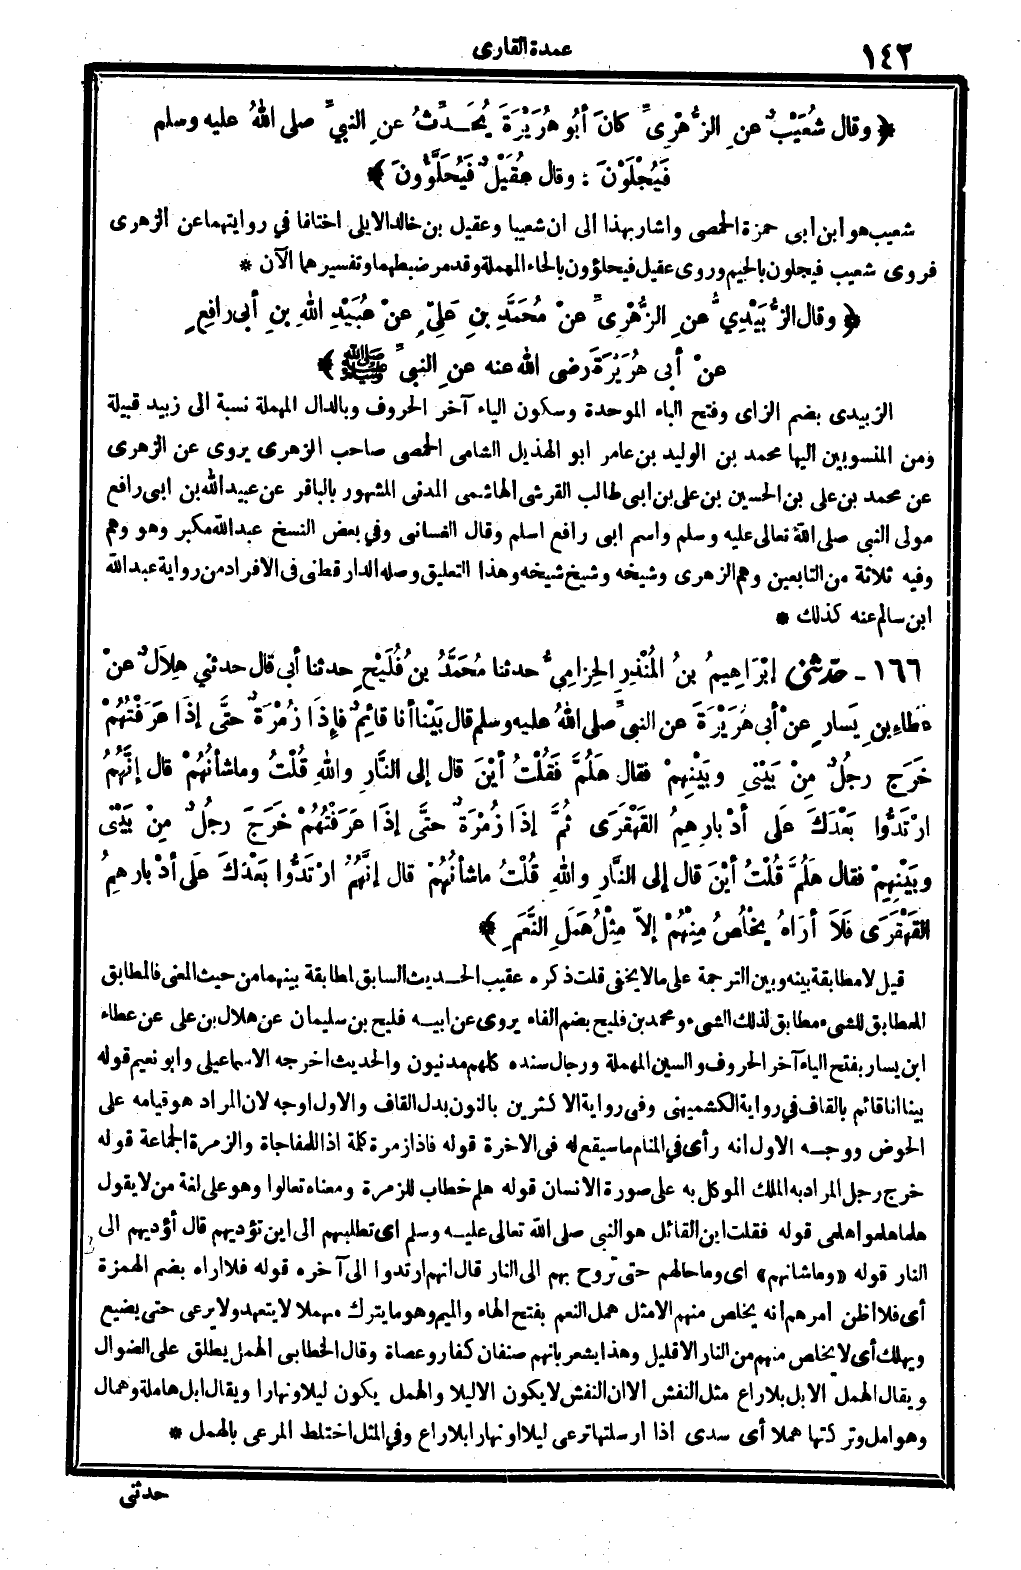 ١٤٢
عمدة القارى
﴿ وقال شُعَيْبٌ عنِ الزُّهْرِىِّ كانَ أبُو هُرَيْرَةَ يُحَدِّثُ عنِ النبيِّ صلى اللهُ عليه وسلم
فَيُجْلَوْنَ : وقال عُقَيْلٌ فَيُحَلَّؤُونَ ﴾
شعيب هو ابن ابى حمزة الحمصى واشار بهذا الى ان شعيبا وعقيل بن خالد الايلى اختلفا في روايتهما عن الزهرى
فروى شعيب فيجلون بالجيم وروى عقيل فيحلؤون بالحاء المهملة وقد مر ضبطهما وتفسيرهما الآن *
﴿ وقال الزُّبَيْدِيُّ عنِ الزُّهْرِىِّ عنْ مُحَمَّدِ بنِ عَلِيٍّ عنْ عُبَيْدِ اللهِ بنِ أبى رافِعٍ
عنْ أبى هُرَيْرَةَ رضى الله عنه عنِ النبيِّ ﷺ ﴾
الزبيدى بضم الزاى وفتح الباء الموحدة وسكون الياء آخر الحروف وبالدال المهملة نسبة الى زبيد قبيلة
ومن المنسوبين اليها محمد بن الوليد بن عامر ابو الهذيل الشامى الحمصى صاحب الزهرى يروى عن الزهرى
عن محمد بن على بن الحسين بن على بن ابى طالب القرشى الهاشمى المدنى المشهور بالباقر عن عبيد الله بن ابى رافع
مولى النبي صلى الله تعالى عليه وسلم واسم ابى رافع اسلم وقال الغسانى وفي بعض النسخ عبد الله مكبر وهو وهم
وفيه ثلاثة من التابعين وهم الزهرى وشيخه وشيخ شيخه وهذا التعليق وصله الدار قطنى فى الافراد من رواية عبد الله
ابن سالم عنه كذلك *
١٦٦ - حدثنى إبْرَاهِيمُ بنُ المُنْذِرِ الحِزامِيُّ حدثنا مُحَمَّدُ بنُ فُلَيْحٍ حدثنا أبى قال حدثني هِلَالٌ عنْ
عطاءِ بنِ يَسارٍ عنْ أبى هُرَيْرَةَ عنِ النبيِّ صلى اللهُ عليه وسلم قال بَيْنا أنا قائِمٌ فإِذَا زُمْرَةٌ حتَّى إذَا عَرَفْتُهُمْ
خَرَجَ رجُلٌ مِنْ بَيْنِى وبَيْنِهِمْ فقال هَلُمَّ فَقُلْتُ أيْنَ قال إلى النَّارِ واللهِ قُلْتُ وماشأنُهُمْ قال إنَّهُمُ
ارْتَدُّوا بَعْدَكَ عَلَى أدْبارِهِمُ القَهْقَرَى ثُمَّ إذَا زُمْرَةٌ حتَّى إذَا عَرَفْتُهُمْ خَرَجَ رجُلٌ مِنْ بَيْنِى
وبَيْنِهِمْ فقال هَلُمَّ قُلْتُ أيْنَ قال إلى النَّارِ واللهِ قُلْتُ ماشأنُهُمْ قال إنَّهُمُ ارْتَدُّوا بَعْدَكَ عَلَى أدْبارِهِمُ
القَهْقَرَى فَلَا أُرَاهُ يَخْلُصُ مِنْهُمْ إلاّ مِثْلُ هَمَلِ النَّعَمِ ﴾
قيل لا مطابقة بينه وبين الترجمة على مالا يخفى قلت ذكره عقيب الحديث السابق لمطابقة بينهما من حيث المعنى فالمطابق
المطابق للشىء مطابق لذلك الشىء ومحمد بن فليح بضم الفاء يروى عن ابيه فليح بن سليمان عن هلال بن على عن عطاء
ابن يسار بفتح الياء آخر الحروف والسين المهملة ورجال سنده كلهم مدنيون والحديث اخرجه الاسماعيلى وابو نعيم قوله
بينا انا قائم بالقاف في رواية الكشميهنى وفى رواية الاكثرين بالنون بدل القاف والاول اوجه لان المراد هو قيامه على
الحوض ووجه الاول انه رأى في المنام ما سيقع له فى الاخرة قوله فاذا زمرة كلمة اذا للمفاجاة والزمرة الجماعة قوله
خرج رجل المراد به الملك الموكل به على صورة الانسان قوله هلم خطاب للزمرة ومعناه تعالوا وهو على لغة من لا يقول
هلما هلموا هلمى قوله فقلت اين القائل هو النبي صلى الله تعالى عليه وسلم اى تطلبهم الى اين تؤديهم قال أؤديهم الى
النار قوله «وماشانهم» اى وما حالهم حتى تروح بهم الى النار قال انهم ارتدوا الى آخره قوله فلا اراه بضم الهمزة
أى فلا اظن امرهم انه يخلص منهم الامثل همل النعم بفتح الهاء والميم وهو ما يترك مهملا لا يتعهد ولا يرعى حتى يضيع
ويهلك أى لا يخلص منهم من النار الا قليل وهذا يشعر بانهم صنفان كفار وعصاة وقال الخطابى الهمل يطلق على الضوال
ويقال الهمل الابل بلا راع مثل النفش الا ان النفش لا يكون الا ليلا والهمل يكون ليلا ونهارا ويقال ابل هاملة وهمال
وهوامل وتركتها هملا أى سدى اذا ارسلتها ترعى ليلا او نهارا بلا راع وفي المثل اختلط المرعى بالهمل *
حدثنى